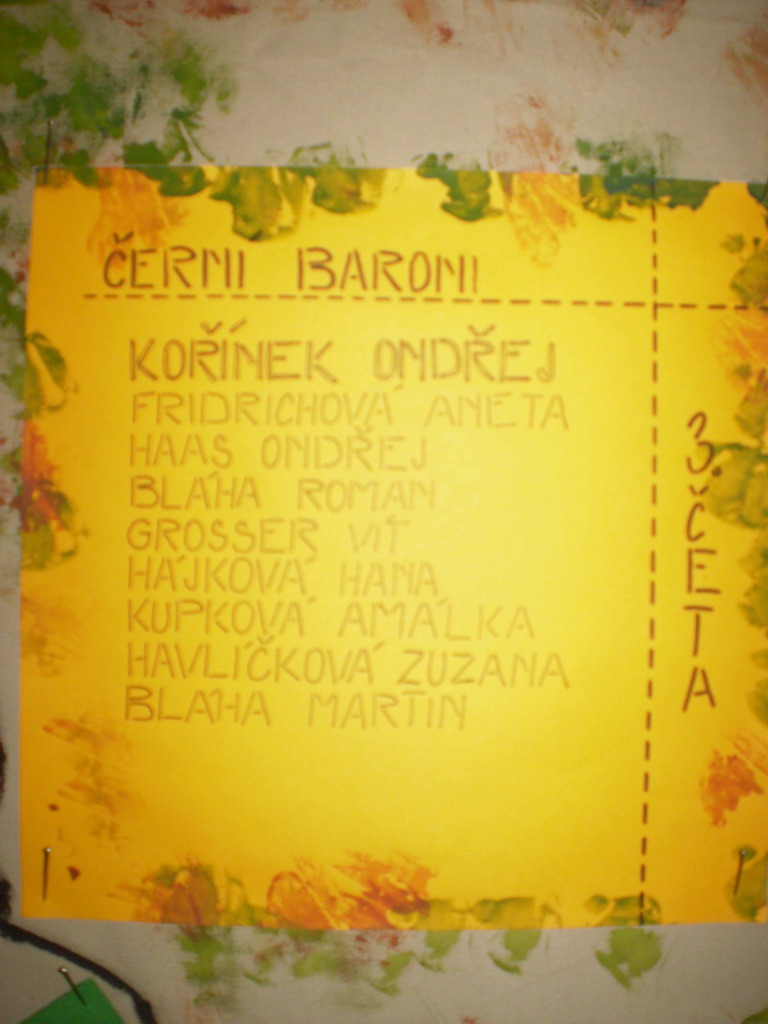 ČERNI BARONI
KOŘÍNEK ONDŘEJ
FRIDRICHOVÁ ANETA
HAAS ONDŘEJ
BLÁHA ROMAN
GROSSER VÍT
HÁJKOVÁ HANA
KUPKOVÁ AMÁLKA
HAVLÍČKOVÁ ZUZANA
BLÁHA MARTIN
3. ČETA